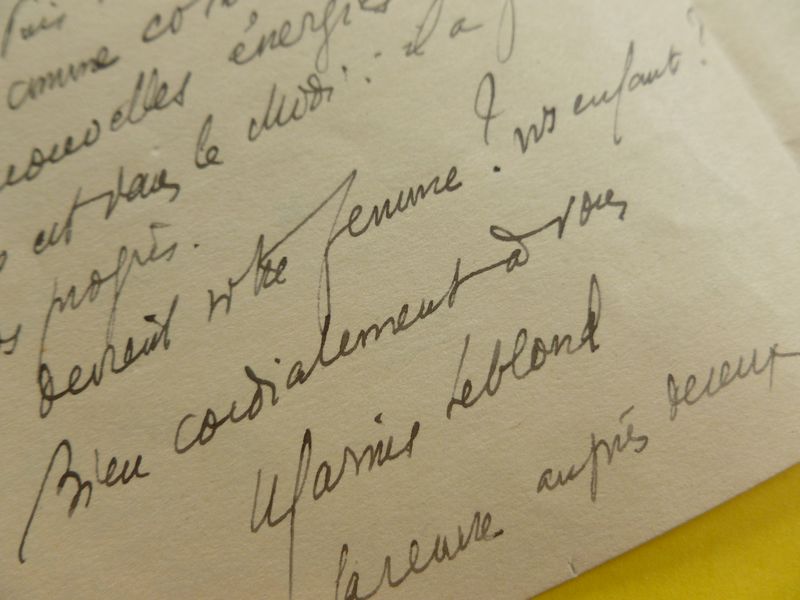 comme
nouvelles énergies
est dans le Midi : il a
progrès.
devient votre femme ? vos enfants ?
Bien cordialement à vous
Marius Leblond
auprès